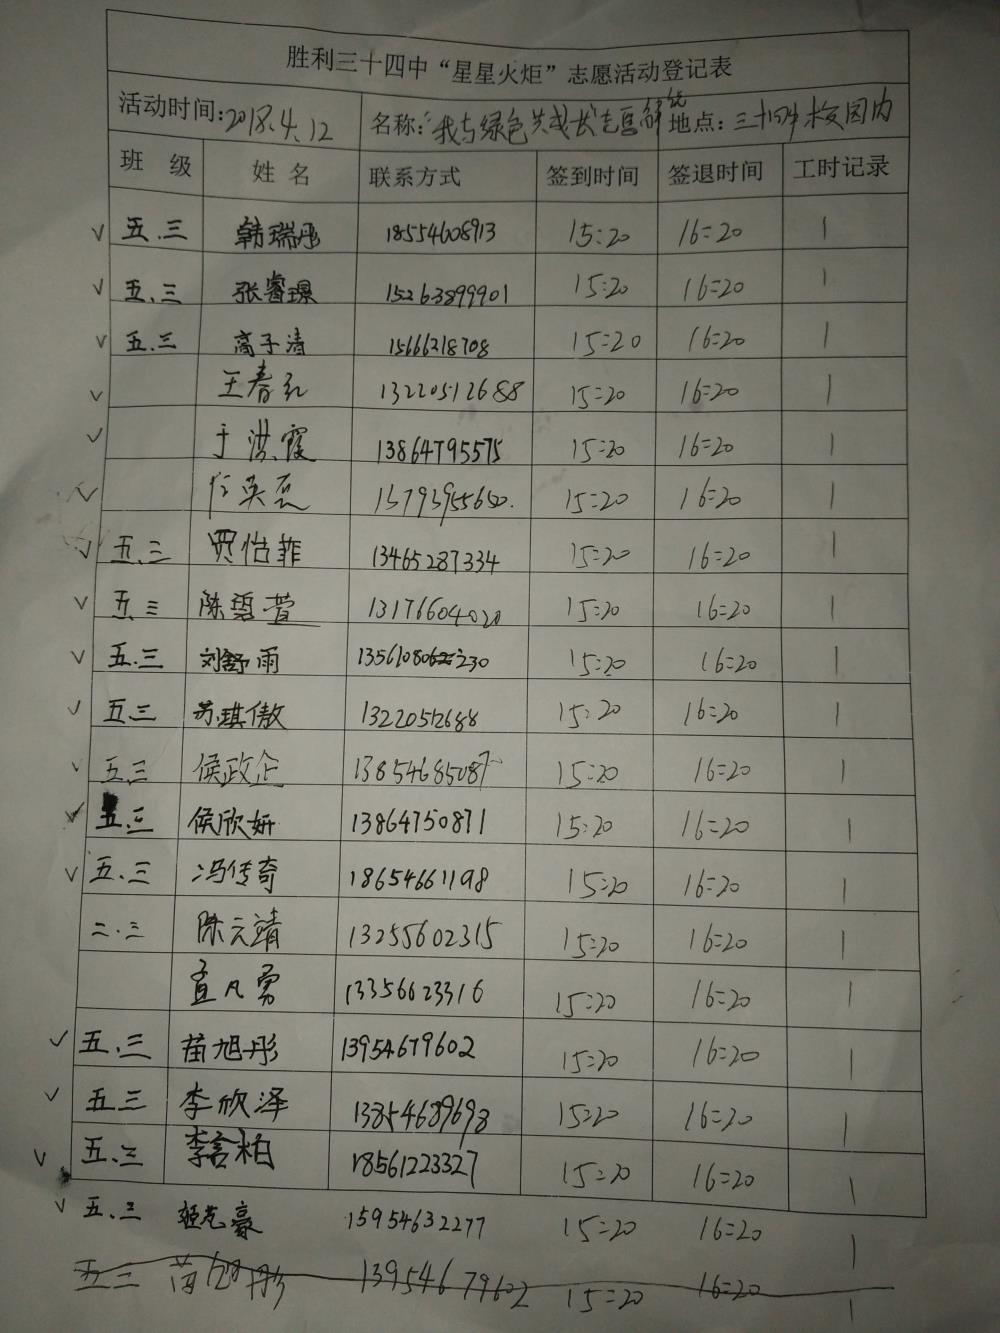 胜利三十四中“星星火炬”志愿活动登记表
活动时间：2018.4.12 名称：“我与绿色共成长志愿 地点：三十四中校园内
班级 姓名 联系方式 签到时间 签退时间 工时记录
√ 五.三 韩瑞彤 18554608913 15:20 16:20 1
√ 五.三 张睿璟 15263899901 15:20 16:20 1
√ 五.三 高子清 15666218708 15:20 16:20 1
√ 王春红 13220512688 15:20 16:20 1
√ 于洪霞 13864795575 15:20 16:20 1
√ 13793955650. 15:20 16:20 1
√ 五.三 贾怡菲 13465287334 15:20 16:20 1
√ 五.三 陈雪萱 13176604020 15:20 16:20 1
√ 五.三 刘舒雨 15:20 16:20 1
√ 五.三 苏琪傲 13220512688 15:20 16:20 1
√ 五.三 侯政企 13854685087 15:20 16:20 1
√ 五.三 侯欣妍 13864750871 15:20 16:20 1
√ 五.三 冯传奇 18654661198 15:20 16:20 1
二.三 陈元靖 13255602315 15:20 16:20 1
孟凡勇 13356623316 15:20 16:20 1
√ 五.三 苗旭彤 13954679602 15:20 16:20 1
√ 五三 李欣泽 13854689698 15:20 16:20 1
√ 五.三 李言柏 18561223327 15:20 16:20 1
√ 五.三 15954632277 15:20 16:20 1
五三 苗旭彤 13954679602 15:20 16:20 1